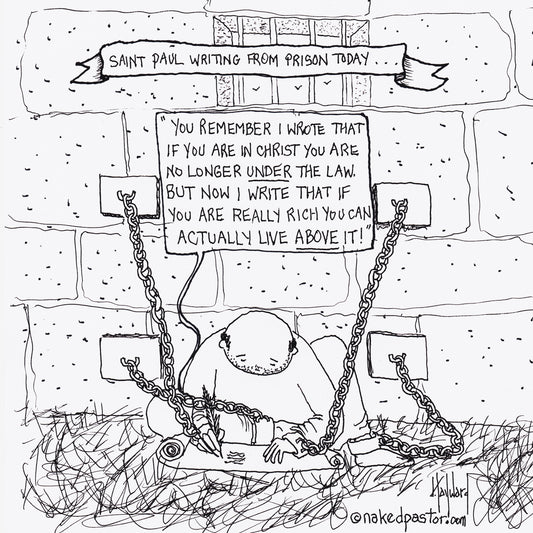 SAINT PAUL WRITING FROM PRISON TODAY . . .
"YOU REMEMBER I WROTE THAT
IF YOU ARE IN CHRIST YOU ARE
NO LONGER UNDER THE LAW.
BUT NOW I WRITE THAT IF
YOU ARE REALLY RICH YOU CAN
ACTUALLY LIVE ABOVE IT!"
Hayward
©nakedpastor.com